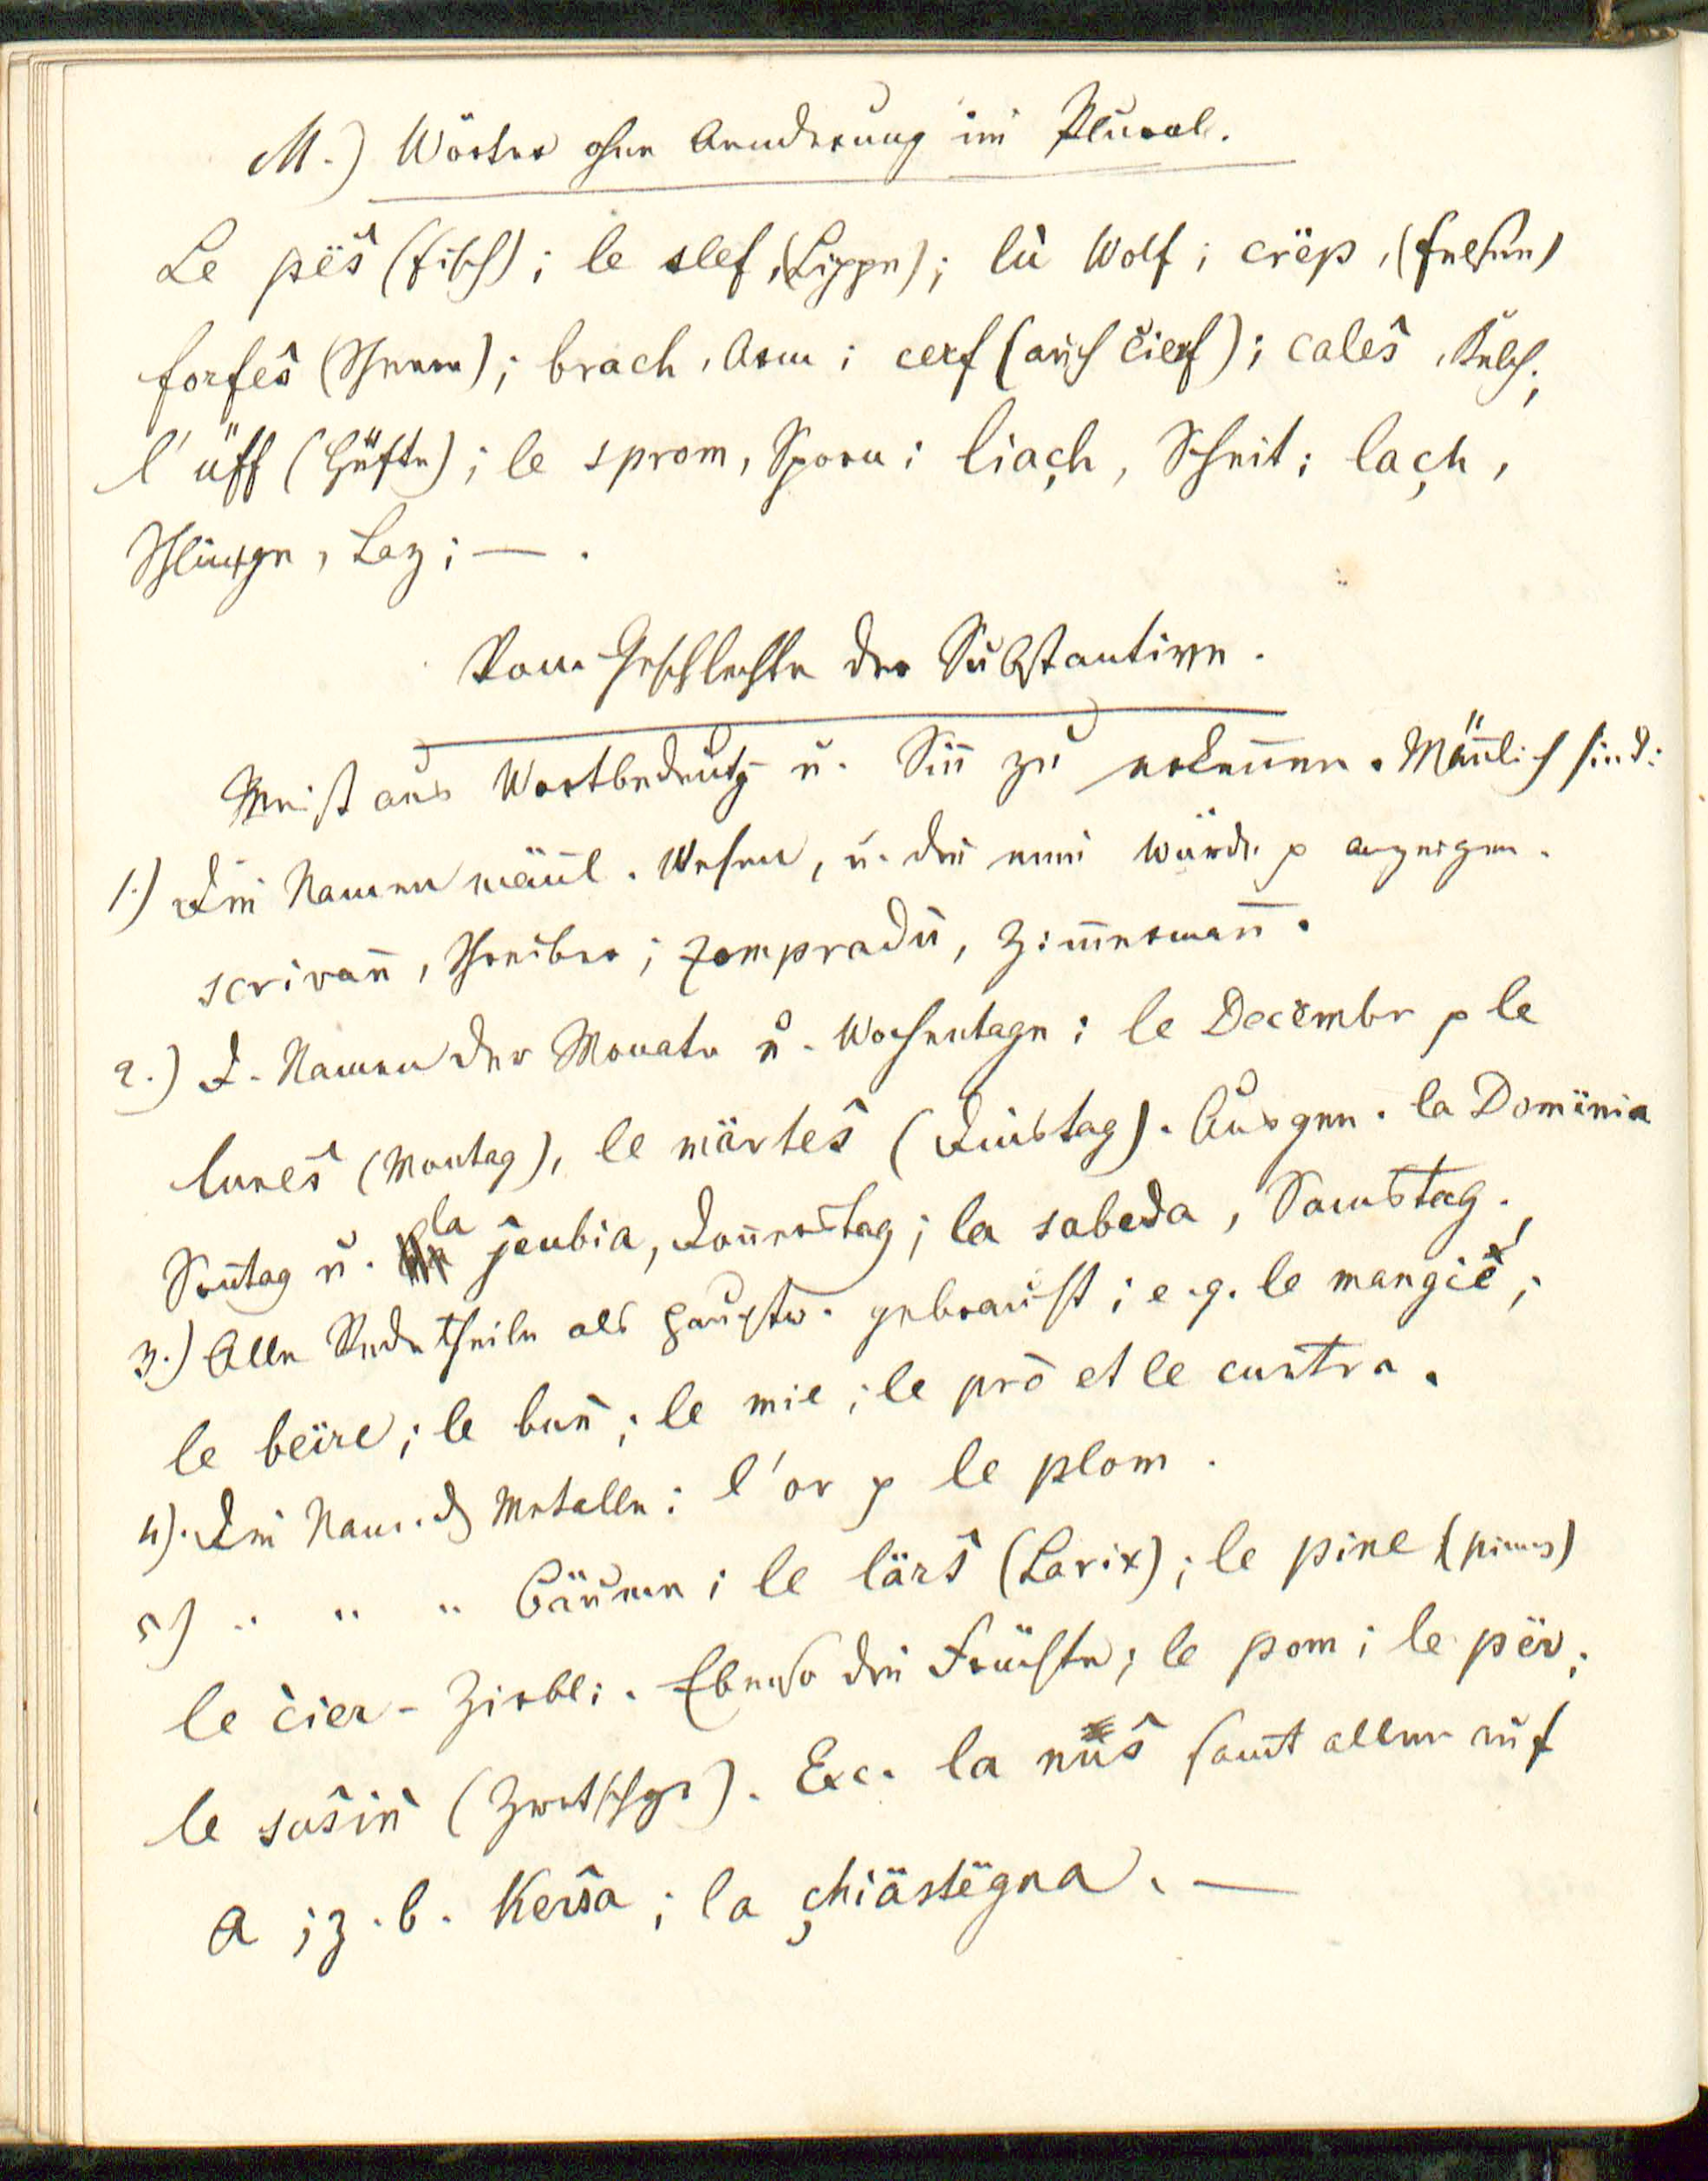 M.) Wörter ohne Aenderung im Plural.
Le pësˆ (Fisch); le slef, (Lippe); lù Wolf; crëp, (Felsen)
forfesˆ (Scheere); brach, Arm; cerf (auch cierf); calesˆ, Kelch;
l'üff (Hüfte); le sprom, Sporn; liaçh, Scheit; laçh,
Schlinge, Laz; — .
Vom Geschlechte der Substantive.
Meist aus Wortbedeutg u. Sinn zu erkennen. Mänlich sind:
1.) Die Namen mänl. Wesen, u. die eine Würde p anzeigen.
scrivan̄, Schreiber; zompradù, Zim̄erman̄.
2.) D. Namen der Monate u. Wochentage; le Decëmbr p le
lunesˆ (Montag), le märtesˆ (Dinstag). Ausgen. la Domënia
Son̄tag u. la ĵeubia, Don̄erstag; la sabeda, Samstag.
3.) Alle Redetheile als Hauptw. gebraucht; e.g. le mangié;
le bëire; le bun̄; le mie; le prò et le cuntra.
4). Die Nam. d Metalle: l'or p le plom.
5) " " " Bäume; le lärsˆ (Larix); le pine (pinus)
le cier - Zirbel; . Ebenso die Früchte; le pom; le për;
le susˆin̄ (Zwetschge). Exc. la nusˆ samt allen auf
a; z. b. Kersˆa; la çhiästëgna. —